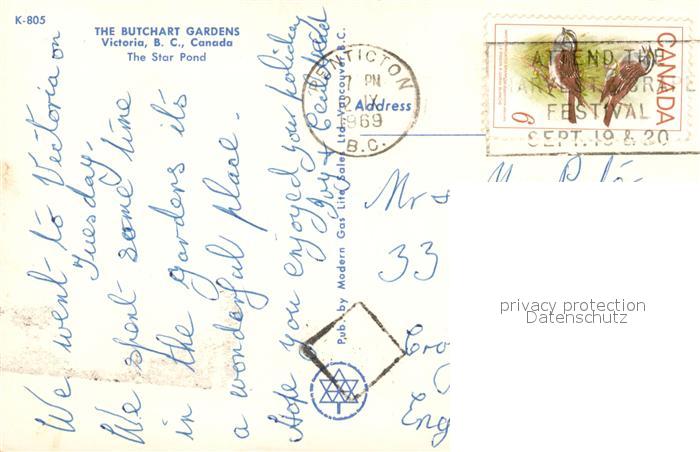 K-805
THE BUTCHART GARDENS
Victoria, B. C., Canada
The Star Pond
We went to Victoria on
Tuesday.
We spent some time
in the Gardens its
a wonderful place.
Hope you enjoyed your holiday
Ivy +
Pub. by Modern Gas Lite Sales Ltd., Vancouver, B.C.
PENTICTON
PM
IX
1969
B.C.
Address
CANADA
6
ATTEND THE
HARVEST & GRAPE
FESTIVAL
SEPT. 19 & 20
Mr &
33
Cro
Eng
privacy protection
Datenschutz